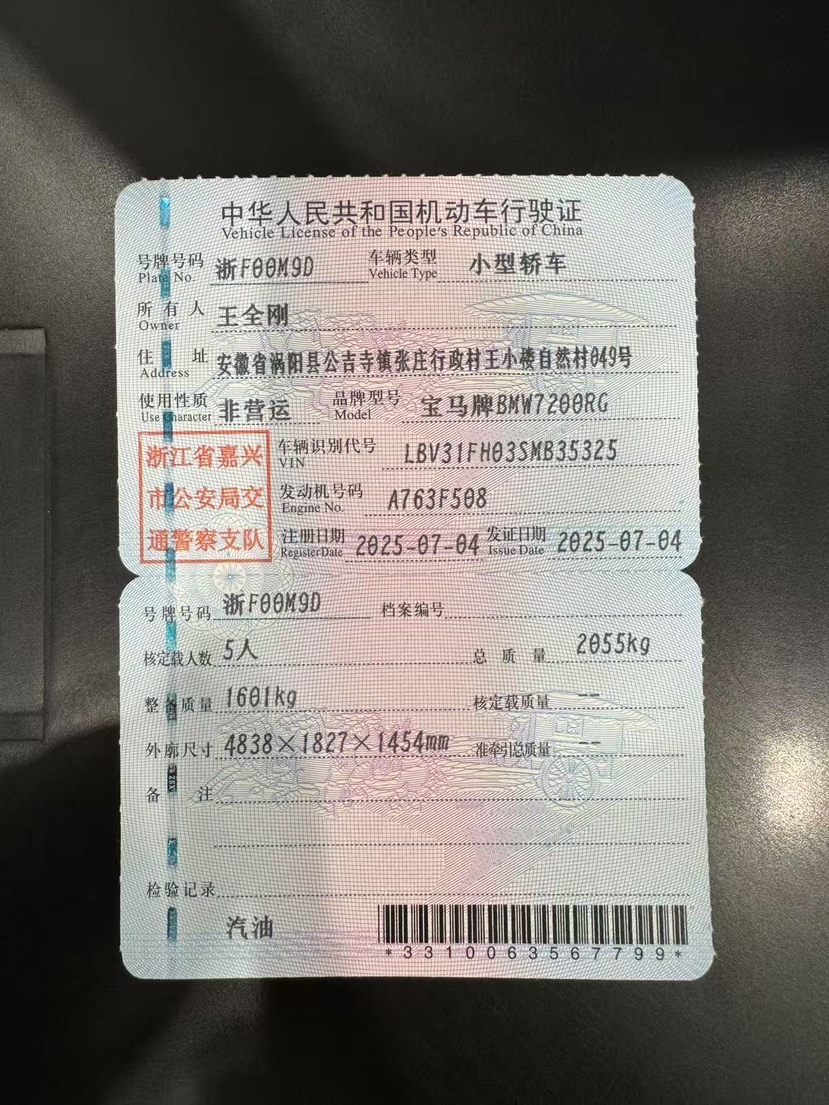 中华人民共和国机动车行驶证
Vehicle License of the People's Republic of China
号牌号码 浙F00M9D 车辆类型 小型轿车
Plate No. Vehicle Type
所有人 王全刚
Owner
住址 安徽省涡阳县公吉寺镇张庄行政村王小楼自然村049号
Address
使用性质 非营运 品牌型号 宝马牌BMW7200RG
Use Character Model
浙江省嘉兴
市公安局交
通警察支队
车辆识别代号 LBV31FH03SMB35325
VIN
发动机号码 A763F508
Engine No.
注册日期 2025-07-04 发证日期 2025-07-04
Register Date Issue Date
号牌号码 浙F00M9D 档案编号
核定载人数 5人 总质量 2055kg
整备质量 1601kg 核定载质量 --
外廓尺寸 4838×1827×1454mm 准牵引总质量 --
备注
检验记录
汽油
*3310063567799*